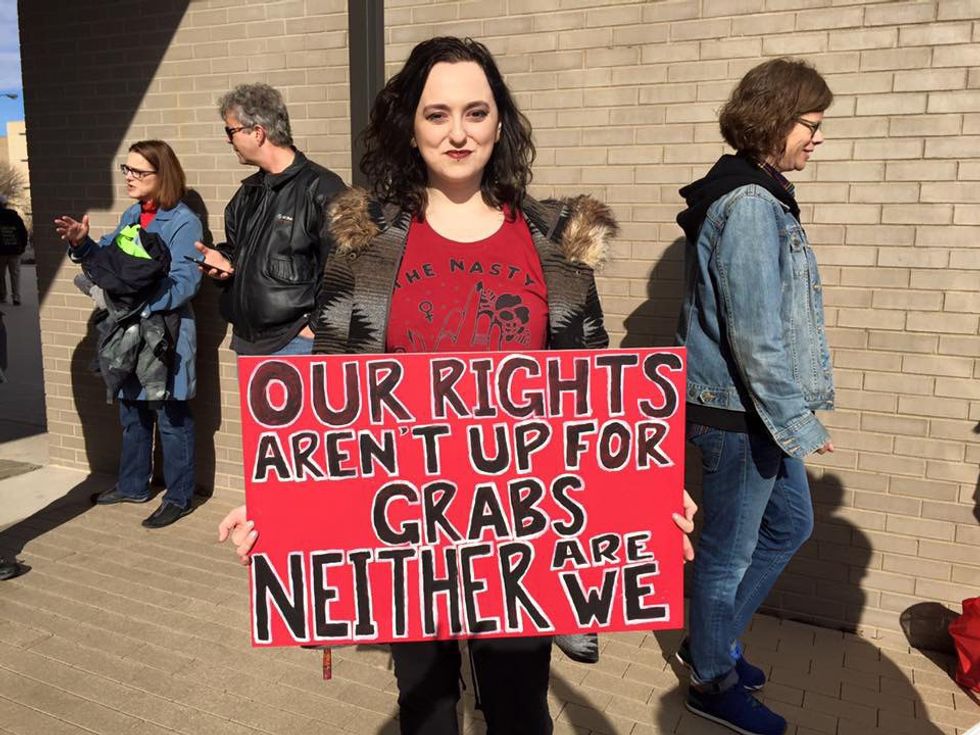 THE NASTY
OUR RIGHTS
AREN'T UP FOR
GRABS
NEITHER ARE
WE